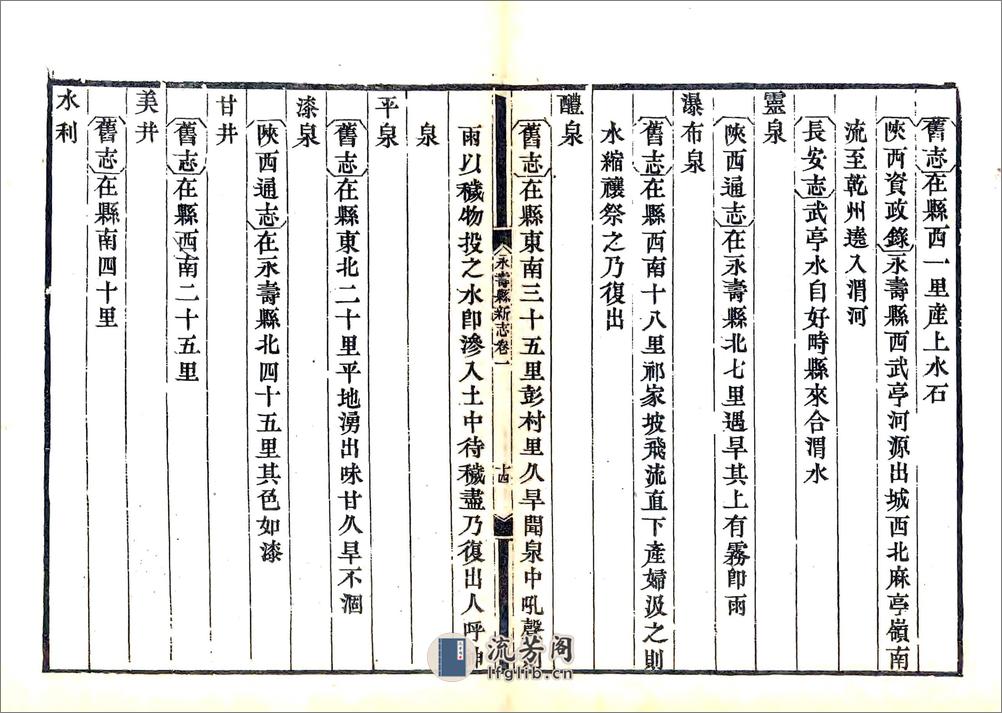 舊志在縣西一里産上水石
陜西資政錄永壽縣西武亭河源出城西北麻亭嶺南
流至乾州遶入渭河
長安志武亭水自好畤縣來合渭水
靈泉
陜西通志在永壽縣北七里遇旱其上有霧卽雨
瀑布泉
舊志在縣西南十八里祁家坡飛流直下產婦汲之則
水縮禳祭之乃復出
醴泉
舊志在縣東南三十五里彭村里久旱聞泉中吼聲
永壽縣新志卷一
十四
雨以穢物投之水卽滲入土中待穢盡乃復出人呼神
泉
平泉
舊志在縣東北二十里平地湧出味甘久旱不涸
漆泉
陜西通志在永壽縣北四十五里其色如漆
甘井
舊志在縣西南二十五里
美井
舊志在縣南四十里
水利
流芳阁
lfglib.cn